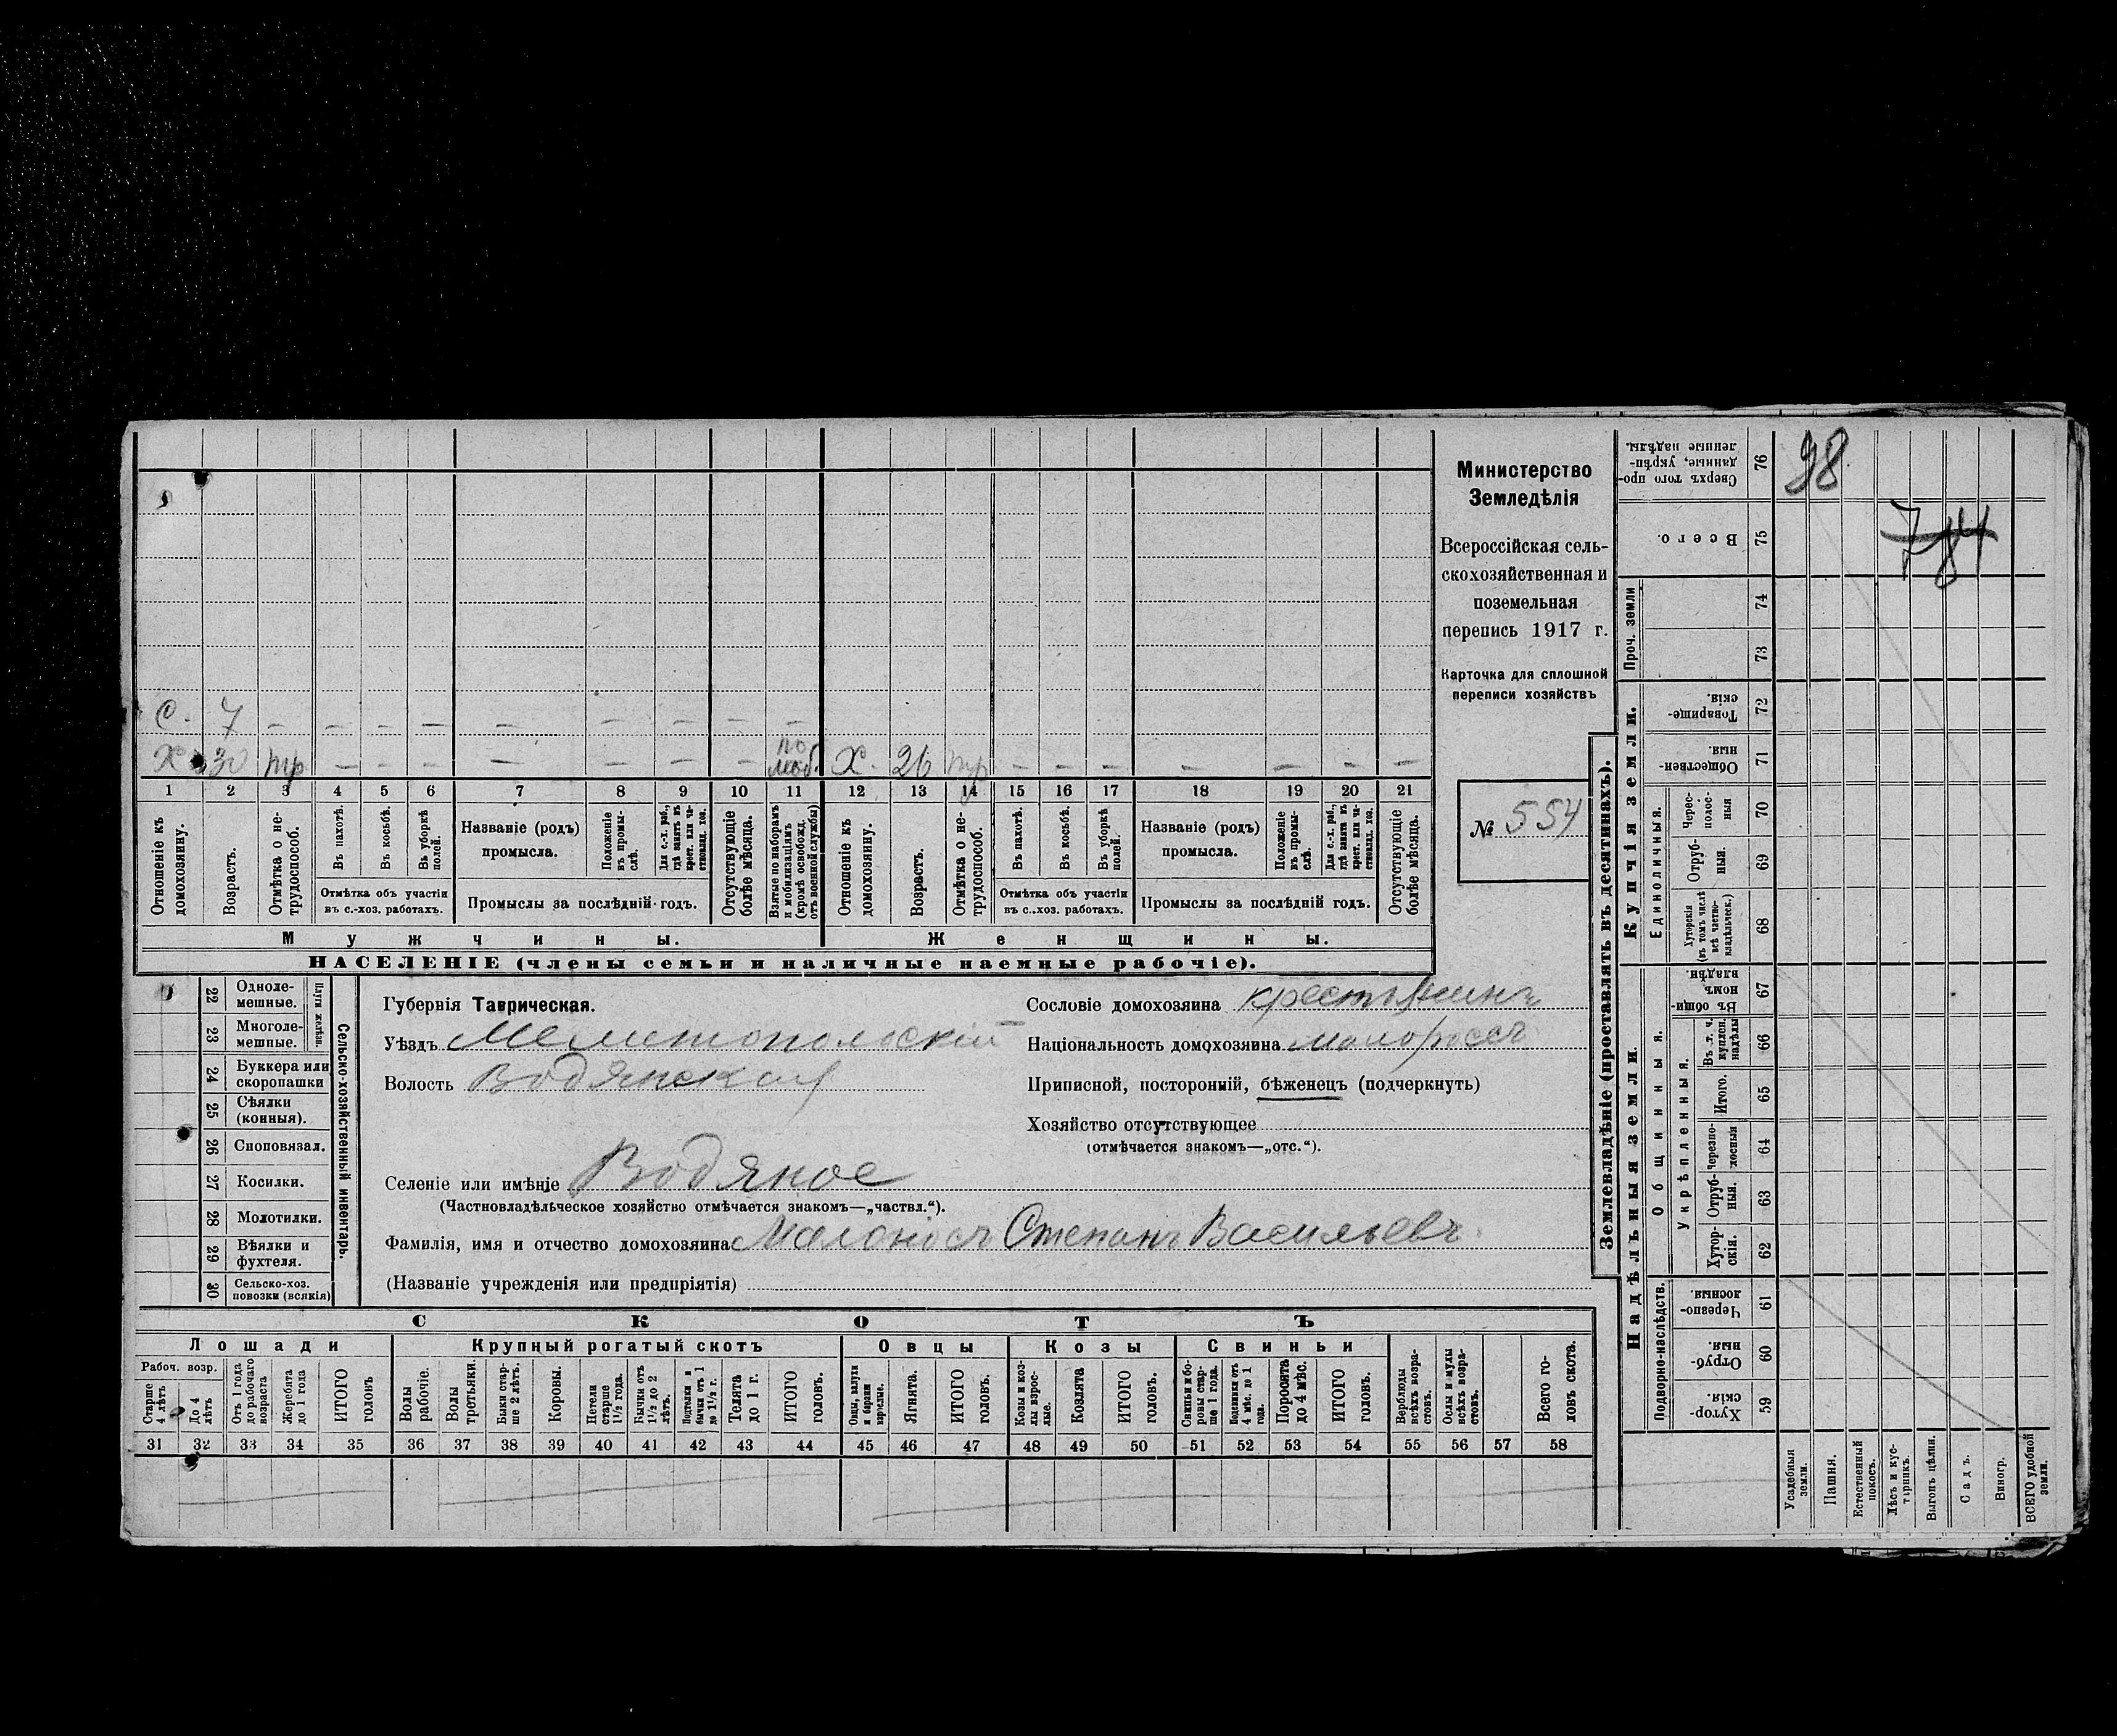 С. 7 – – – – – – – – –
Х 30 тр – – – – – – – по моб. Х. 26 тр – – – – – – –
1 2 3 4 5 6 7 8 9 10 11 12 13 14 15 16 17 18 19 20 21
Отношеніе къ домохозяину.
Возрастъ.
Отмѣтка о не-
трудоспособ.
Въ пахотѣ.
Въ косьбѣ.
Въ уборкѣ
полей.
Отмѣтка объ участіи
въ с.-хоз. работахъ.
Названіе (родъ)
промысла.
Положеніе
въ промы-
слѣ.
Для с.-х. раб.,
гдѣ занятъ въ
крест. или ча-
стновлад. хоз.
Промыслы за послѣдній годъ.
Отсутствующіе
болѣе мѣсяца.
Взятые по наборамъ
и мобилизаціямъ
(кромѣ освобожд.
отъ военной службы)
Отношеніе къ
домохозяину.
Возрастъ.
Отмѣтка о не-
трудоспособ.
Въ пахотѣ.
Въ косьбѣ.
Въ уборкѣ
полей.
Отмѣтка объ участіи
въ с.-хоз. работахъ.
Названіе (родъ)
промысла.
Положеніе
въ промы-
слѣ.
Для с.-х. раб.,
гдѣ занятъ въ
крест. или ча-
стновлад. хоз.
Промыслы за послѣдній годъ.
Отсутствующіе
болѣе мѣсяца.
Мужчины.
Женщины.
НАСЕЛЕНІЕ (члены семьи и наличные наемные рабочіе).
Министерство
Земледѣлія
Всероссійская сель-
скохозяйственная и
поземельная
перепись 1917 г.
Карточка для сплошной
переписи хозяйствъ
№ 554
22 Одноле-
мешные.
23 Многоле-
мешные.
Плуги желѣзн.
24 Буккера или
скоропашки
25 Сѣялки
(конныя).
26 Сноповязал.
27 Косилки.
28 Молотилки.
29 Вѣялки и
фухтеля.
30 Сельско-хоз.
повозки (всякія)
Сельско-хозяйственный инвентарь.
Губернія Таврическая.
Уѣздъ Мелитопольскій
Волость Водянская
Селеніе или имѣніе Водяное
(Частновладѣльческое хозяйство отмѣчается знакомъ—„частвл.“).
Фамилія, имя и отчество домохозяина Малонісъ Степанъ Васильевъ
(Названіе учрежденія или предпріятія)
Сословіе домохозяина крестьянинъ
Національность домохозяина малороссъ
Приписной, посторонній, бѣженецъ (подчеркнуть)
Хозяйство отсутствующее
(отмѣчается знакомъ—„отс.“).
СКОТЪ
Лошади
Крупный рогатый скотъ
Овцы
Козы
Свиньи
Рабоч. возр.
Старше
4 лѣтъ
До 4
лѣтъ
Отъ 1 года
до рабочаго
возраста
Жеребята
до 1 года
ИТОГО
головъ
Волы
рабочіе.
Волы
третьяки.
Быки стар-
ше 2 лѣтъ.
Коровы.
Нетели
старше
1½ года.
Бычки отъ
1½ до 2
лѣтъ.
Подтелки и
бычки отъ 1
до 1½ г.
Телята
до 1 г.
ИТОГО
головъ.
Овцы, валухи
и бараны
взрослые.
Ягнята.
ИТОГО
головъ.
Козы и коз-
лы взрос-
лые.
Козлята
ИТОГО
головъ.
Свиньи и бо-
ровы стар-
ше 1 года.
Подсвинки отъ
4 мѣс. до 1
года.
Поросята
до 4 мѣс.
ИТОГО
головъ.
Верблюды
всѣхъ возра-
стовъ.
Ослы и мулы
всѣхъ возра-
стовъ.
Всего го-
ловъ скота.
31 32 33 34 35 36 37 38 39 40 41 42 43 44 45 46 47 48 49 50 51 52 53 54 55 56 57 58
Землевладѣніе (проставлять въ десятинахъ).
Сверхъ того про-
данные, укрѣп-
ленные надѣлы.
76
98
Всего.
75
784
Проч. земли
74
73
Купчія земли.
Товарище-
скія.
72
Обществен-
ныя.
71
Единоличныя.
Черес-
полос-
ныя
70
Отруб-
ныя.
69
Хуторскія
(въ томъ числѣ
всѣ частно-
владѣльческ.)
68
Надѣльныя земли.
Общинныя.
Въ общин-
номъ
владѣн.
67
Укрѣпленныя.
Въ т. ч.
куплен.
надѣлы
66
Итого.
65
Черезпо-
лосныя
64
Отруб-
ныя.
63
Хутор-
скія.
62
Подворно-наслѣдств.
Черезпо-
лосныя.
61
Отруб-
ныя.
60
Хутор-
скія.
59
Усадебныя
земли.
Пашня.
Естественный
покосъ.
Лѣсъ и кус-
тарникъ.
Выгонъ цѣлин.
Садъ.
Виногр.
ВСЕГО удобной
земли.